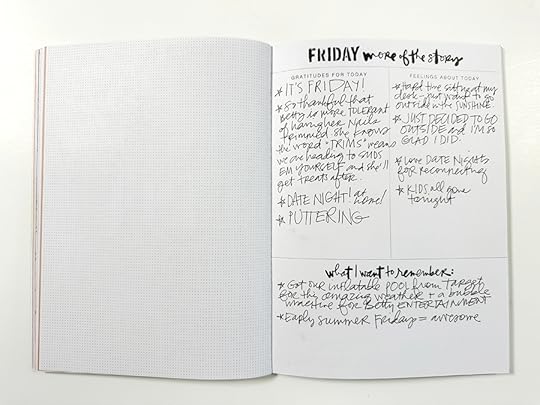 FRIDAY more of the story
GRATITUDES FOR TODAY
* IT'S FRIDAY!
* So thankful that
Betty is more TOLERANT
of having her Nails
trimmed. She knows
the word "TRIMS" means
we are heading to SUDS
EM YOURSELF and she'll
get treats after.
* DATE NIGHT! at home!
* PUTTERING
FEELINGS ABOUT TODAY
* Hard time sitting at my
desk - just want to go
outside in the SUNSHINE.
* JUST DECIDED TO GO
OUTSIDE and I'M SO
GLAD I DID.
* Love DATE NIGHTS
for reconnecting
* KIDS all gone
tonight
what I want to remember:
* Got our inflatable POOL from Target
for this amazing weather + a bubble
machine for Betty ENTERTAINMENT
* Early summer Fridays = awesome